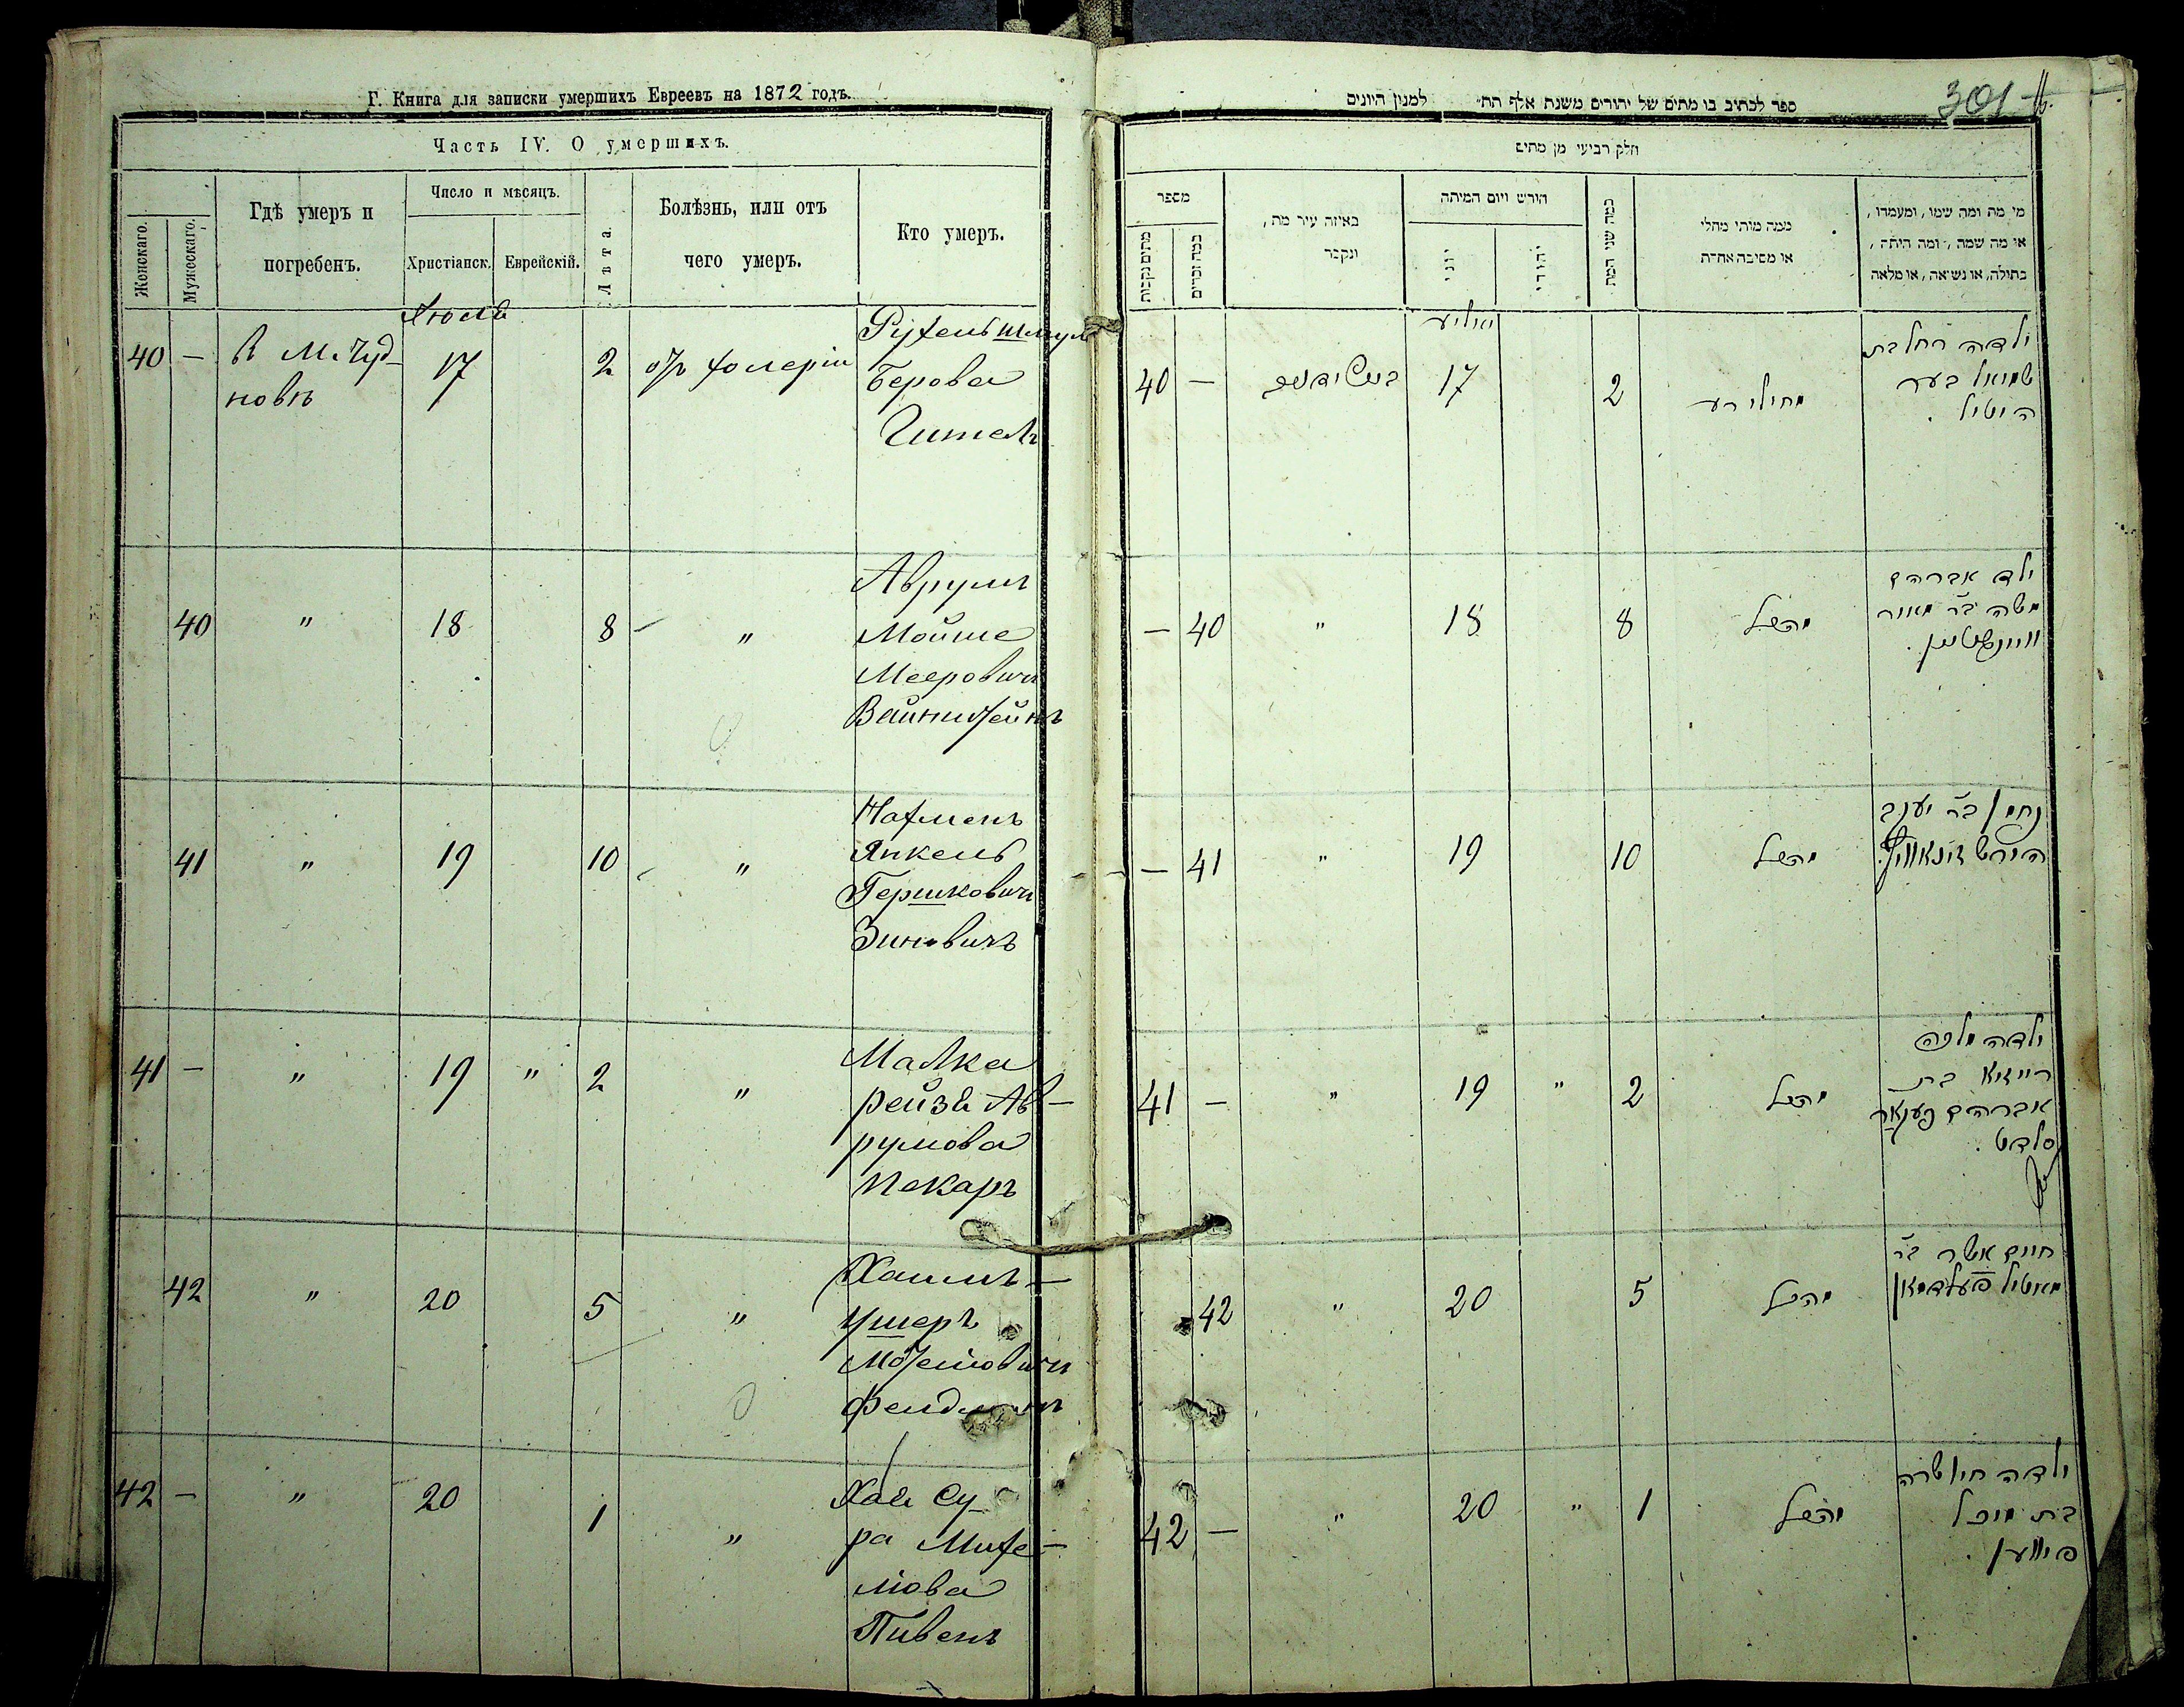 Г. Книга для записки умершихъ Евреевъ на 1872 годъ.
Часть IV. О умершихъ.
Женскаго.
Мужескаго.
Гдѣ умеръ и
погребенъ.
Число и мѣсяцъ.
Христіанск.
Еврейскій.
Лѣта.
Болѣзнь, или отъ
чего умеръ.
Кто умеръ.
Июля
40 — В М. Чуд-
новѣ
17
2
отъ холеріи
Рухель Шмул
Берова
Гитель
40 " 18 8 — "
Аврумъ
Мойше
Мееровичъ
Вайнштейнъ
41 " 19 10 "
Нахменъ
Янкель
Гершковичъ
Зиновичъ
41 — " 19 " 2 "
Малка
рейза Ав-
румова
пекаръ
42 " 20 5 "
Хаимъ-
Ушеръ
Мотелiовичъ
Фельдманъ
42 — " 20 1 "
Хая Су-
ра Михе-
лiова
Пивенъ
ספר לכתוב בו מתים של יהודים משנת אלף תת למנין היונים
301
חלק רביעי מן מתים
מספר
מתים נקבות
כמה זכרים
באיזה עיר מת,
ונקבר
חודש ויום המיתה
יוני
יהודי
כמה שני המת
ממה מותו מחלי
או מסיבה אחרת
מי מת ומה שמו, ומעמדו,
או מה שמה, ומה היתה,
בתולה, או נשואה, או מלאה
יאליע
40 — 17 2
מחולירע
ילדה רחל בת
שמואל בער
היטיל.
— 40 " 18 8
מהנ״ל
ילד אברהם
משה ב״ר מאיר
וויינשטיין.
— 41 " 19 10
מהנ״ל
נחמן ב״ר יעקב
הירש זינאוויץ
41 — " 19 " 2
מהנ״ל
ילדה מלכה
רייזא בת
אברהם פעקאר
סלדט.
42 " 20 5
מהנ״ל
חיים אשר ב״ר
מאטיל פעלדמאן
42 — " 20 " 1
מהנ״ל
ילדה חי׳ שרה
בת מיכל
פיווען.